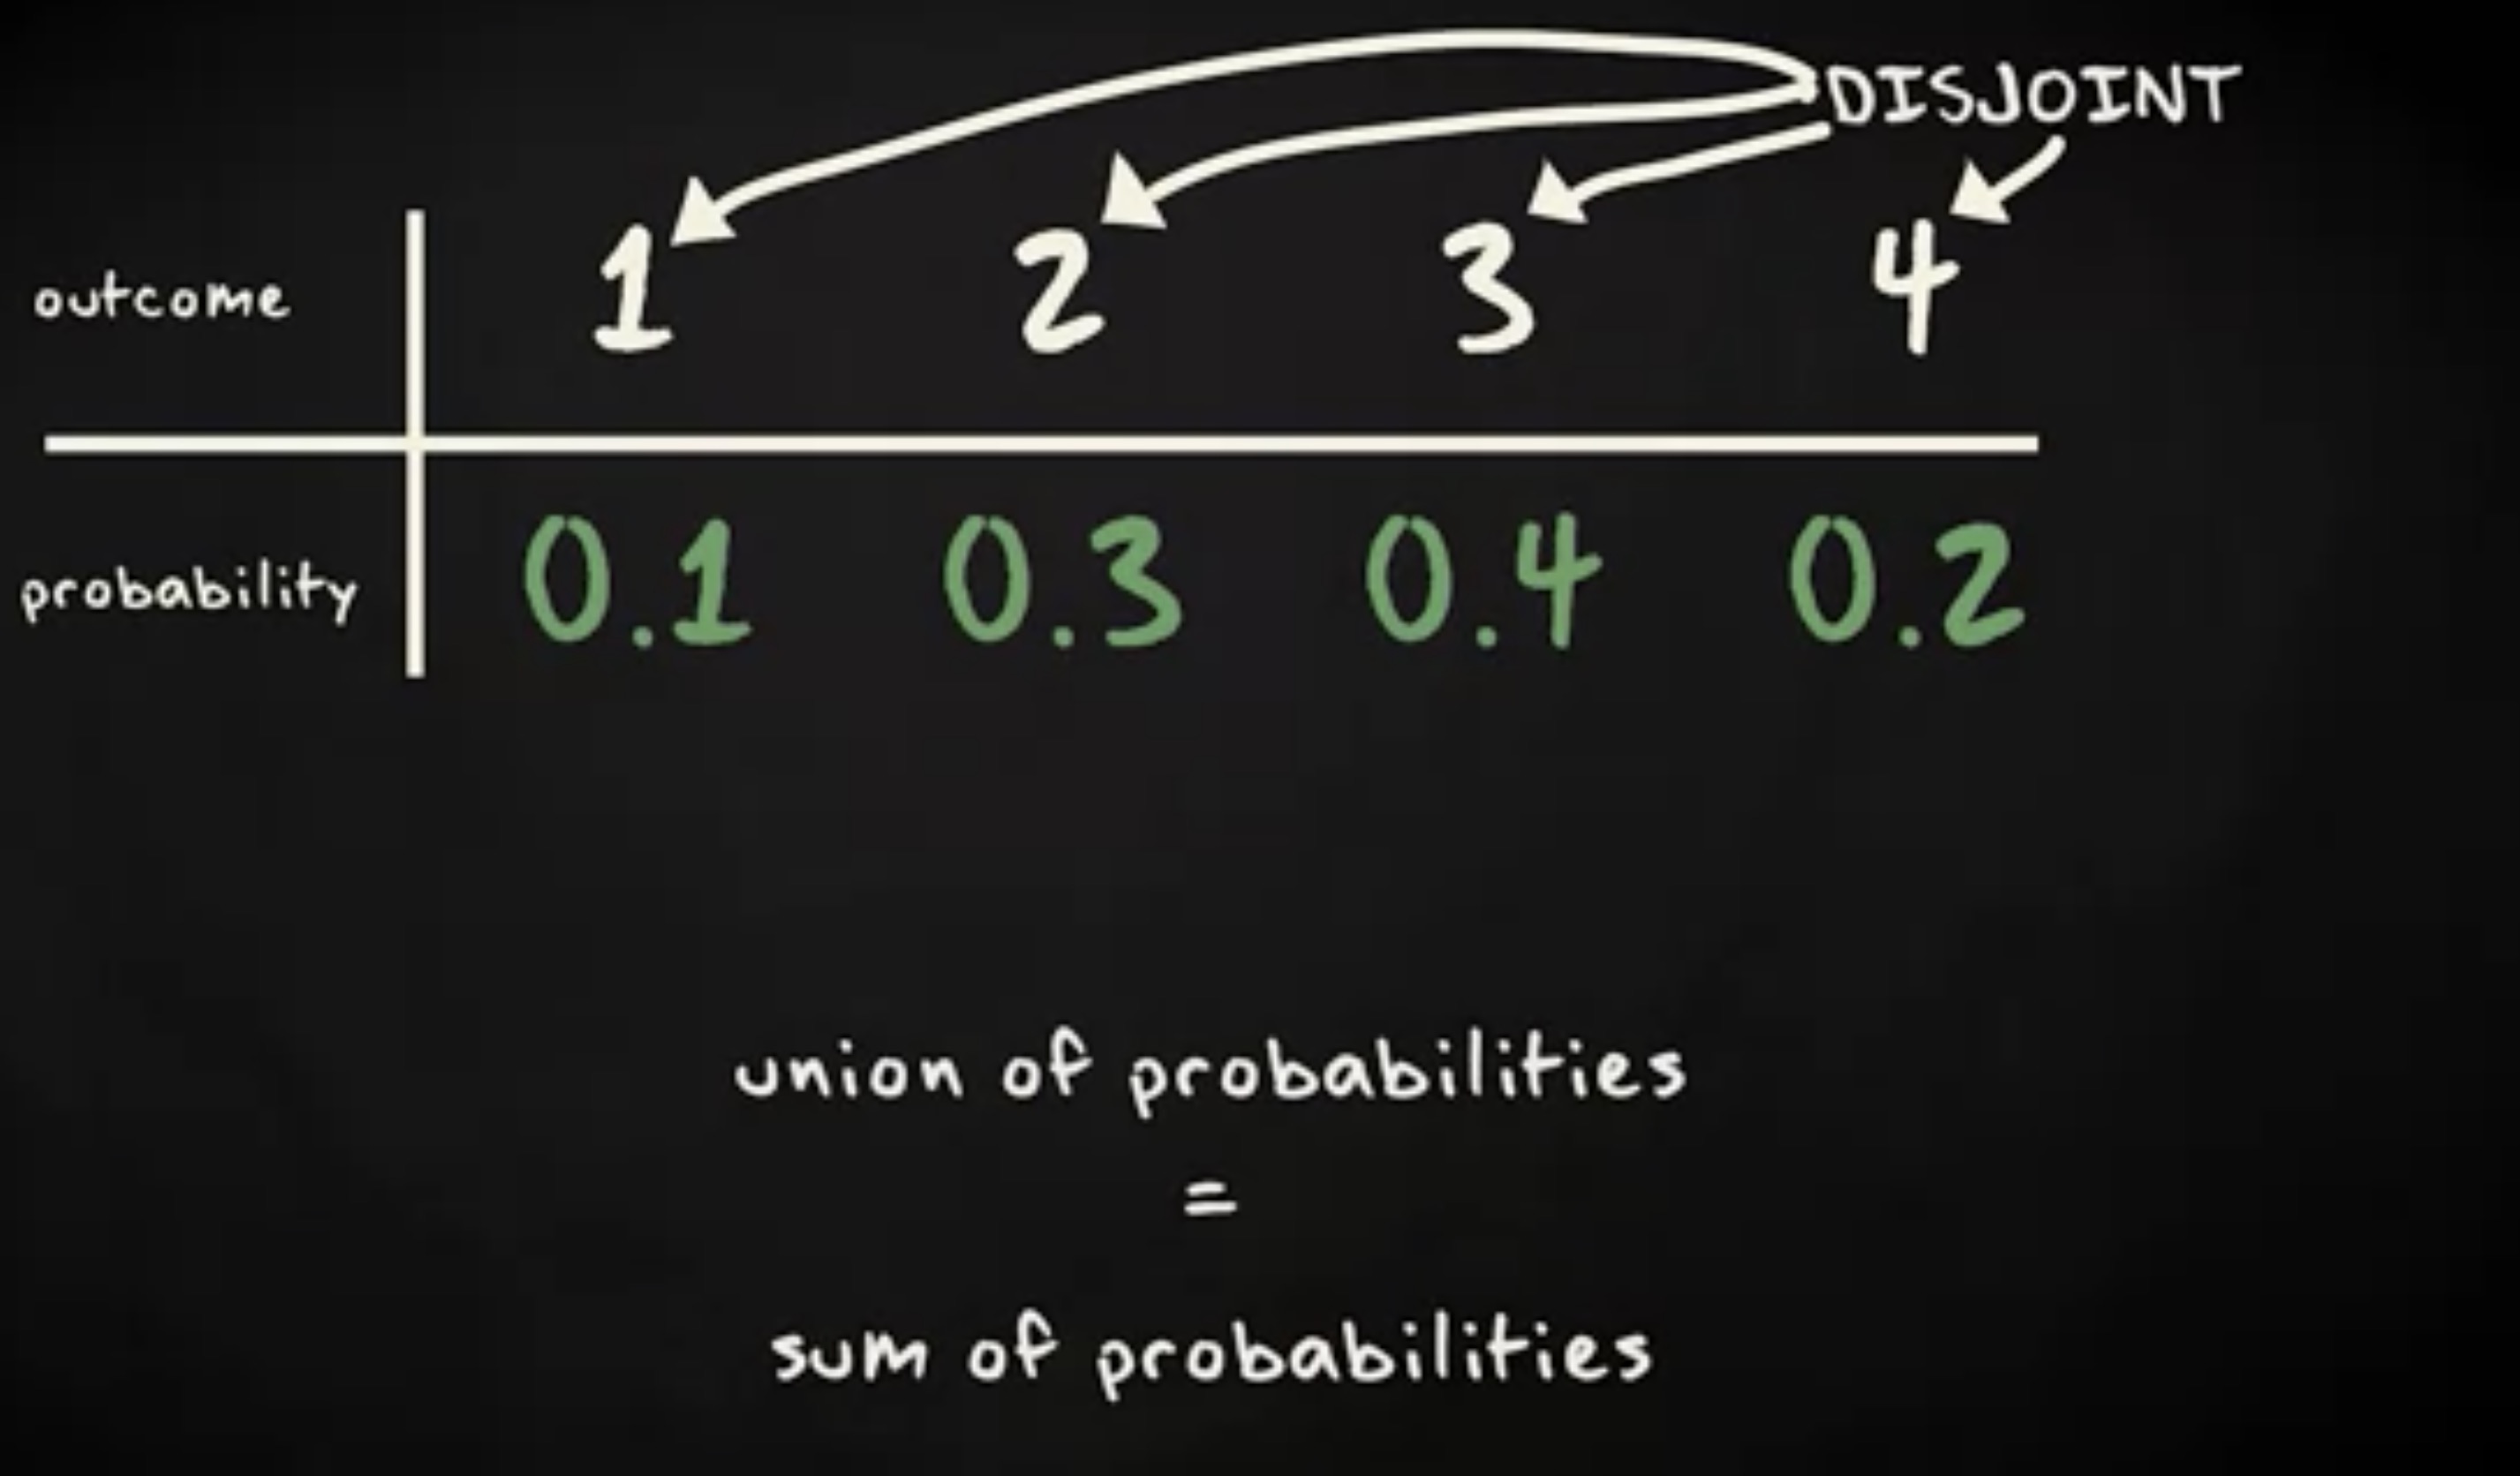 DISJOINT
outcome 1 2 3 4
probability 0.1 0.3 0.4 0.2
union of probabilities
=
sum of probabilities